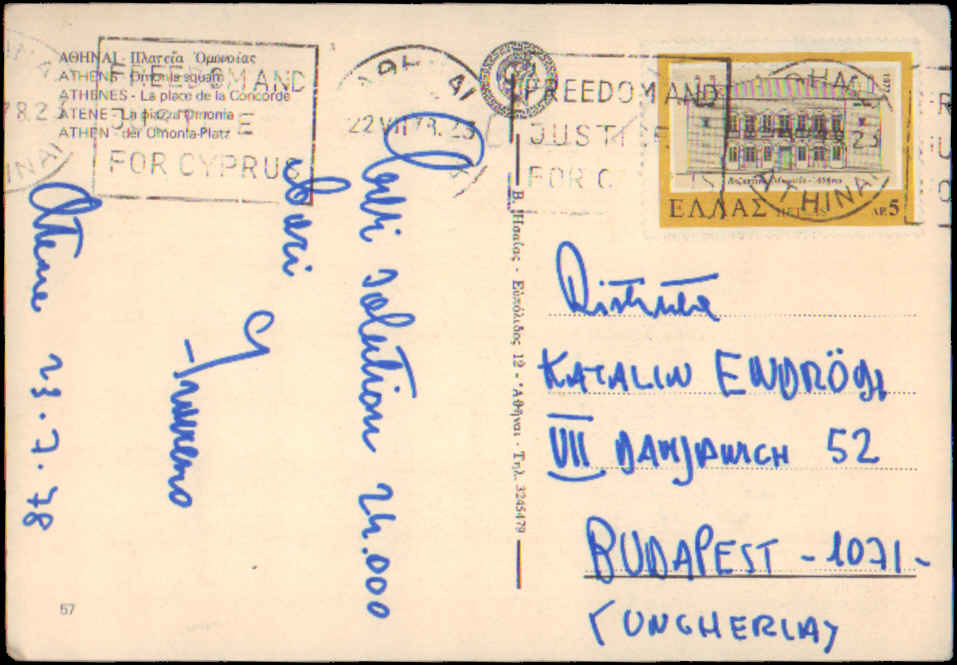 ΑΘΗΝΑΙ - Πλατεῖα Ὁμονοίας
ATHENS - Omonia square
ATHENES - La place de la Concorde
ATENE - La piazza Omonia
ATHEN - der Omonia-Platz
FREEDOM AND
JUSTICE
FOR CYPRUS
22 VII 78.23
FREEDOM AND
JUSTICE
FOR C
ATHINAI
ΕΛΛΑΣ HELLAS ΔΡ.5
Atene 23.7.78
saluti
24.000
baci
B.
12 - Ἀθῆναι - Τηλ. 3245479
KATALIN ENDRÖDI
VII DAMJANICH 52
BUDAPEST - 1071 -
(UNGHERIA)
57